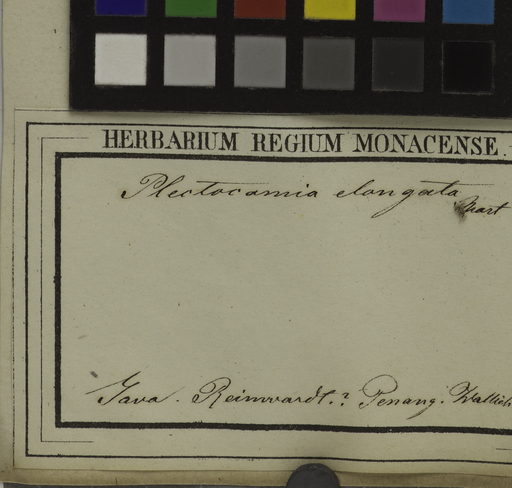 HERBARIUM REGIUM MONACENSE.
Plectocamia elongata
Mart
Java. Reinwardt.? Penang. Wallich